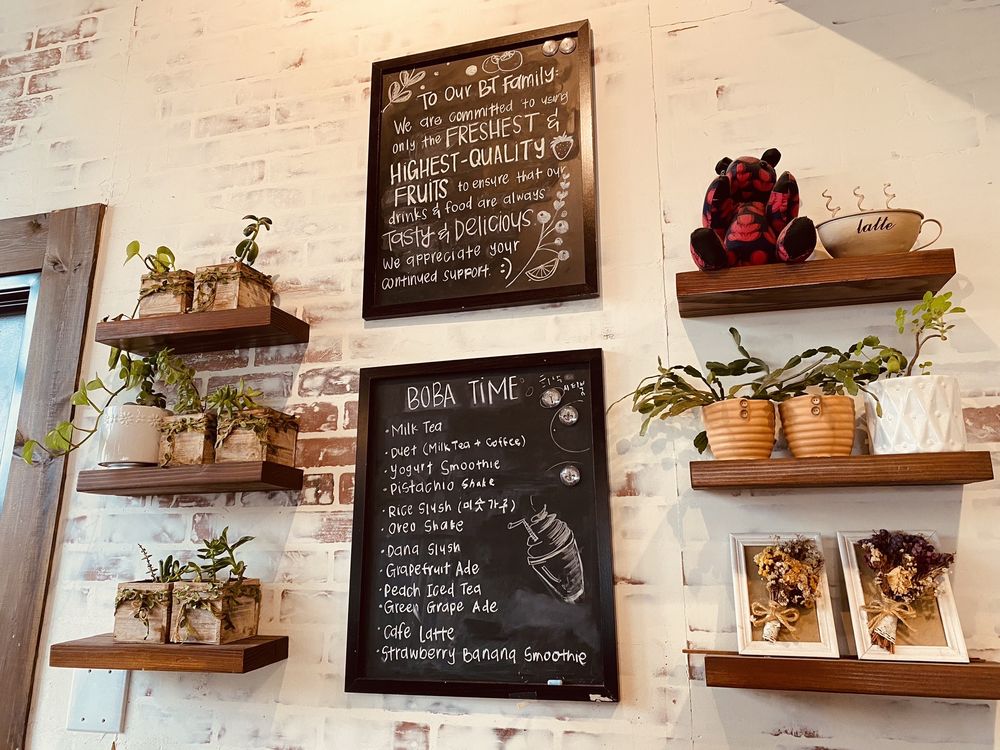 To Our BT Family:
We are committed to using
only the FRESHEST &
HIGHEST-QUALITY
FRUITS to ensure that our
drinks & food are always
Tasty & Delicious.
We appreciate your
continued support. :)
latte
BOBA TIME
• Milk Tea
• Duet (Milk Tea + Coffee)
• Yogurt Smoothie
• Pistachio Shake
• Rice Slush (미숫가루)
• Oreo Shake
• Dana Slush
• Grapefruit Ade
• Peach Iced Tea
• Green Grape Ade
• Cafe Latte
• Strawberry Banana Smoothie